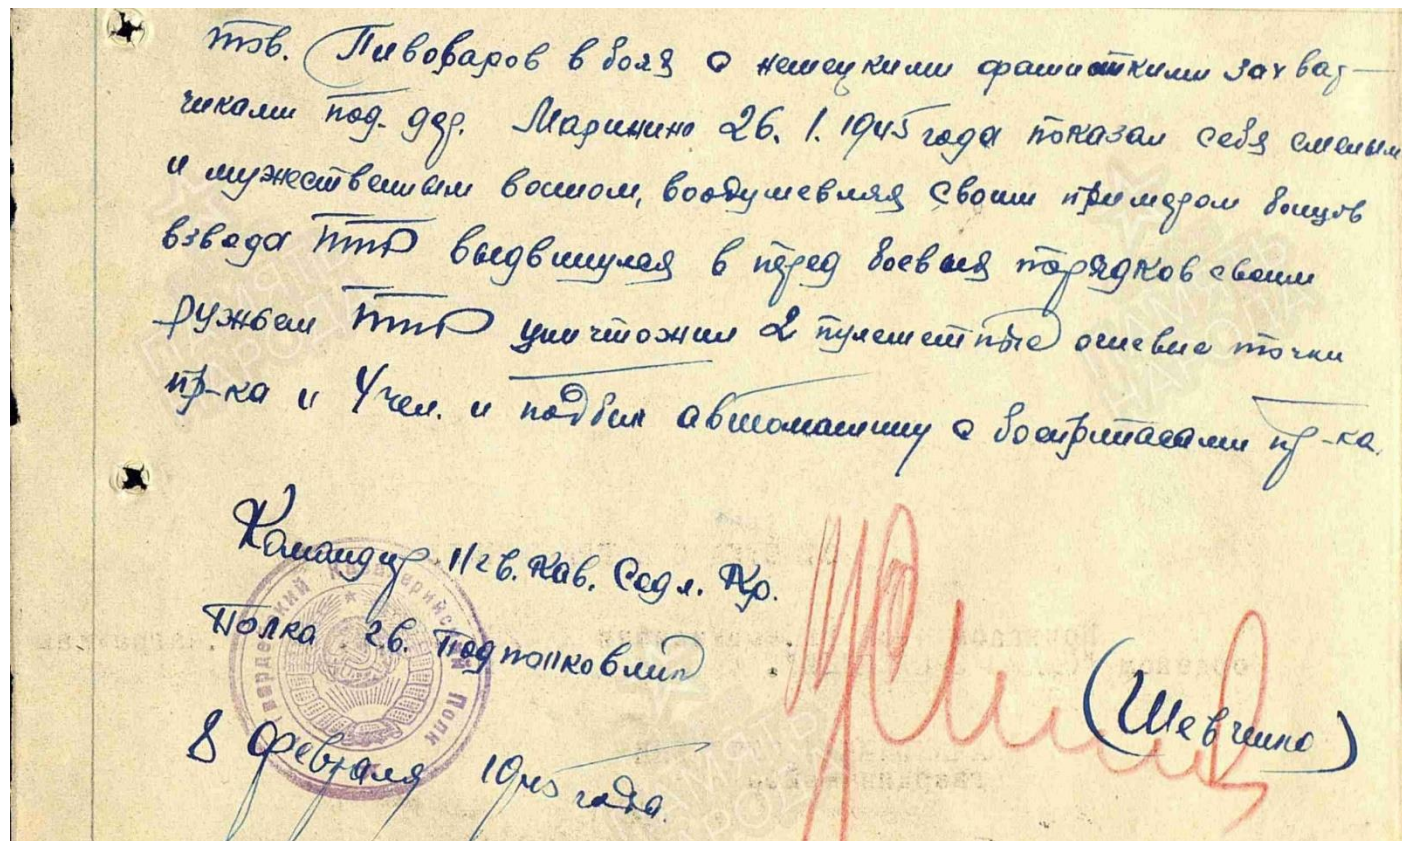 тов. Пивоваров в боях с немецкими фашисткими захват-
чиками под. дер. Маринино 26. 1. 1945 года показал себя смелым
и мужественным воином, воодушевляя своим примером бойцов
взвода ПТР выдвинулся в перед боевых порядков своим
ружьем ПТР уничтожил 2 пулеметные огневые точки
пр-ка и 4 чел. и подбил автомашину с боеприпасами пр-ка.
Командир 11 гв. Кав. Седл. Кр.
Полка гв. Подполковник
(Шевченко)
8 февраля 1945 года.
Гвардейский Кавалерийский Полк
ПАМЯТЬ НАРОДА